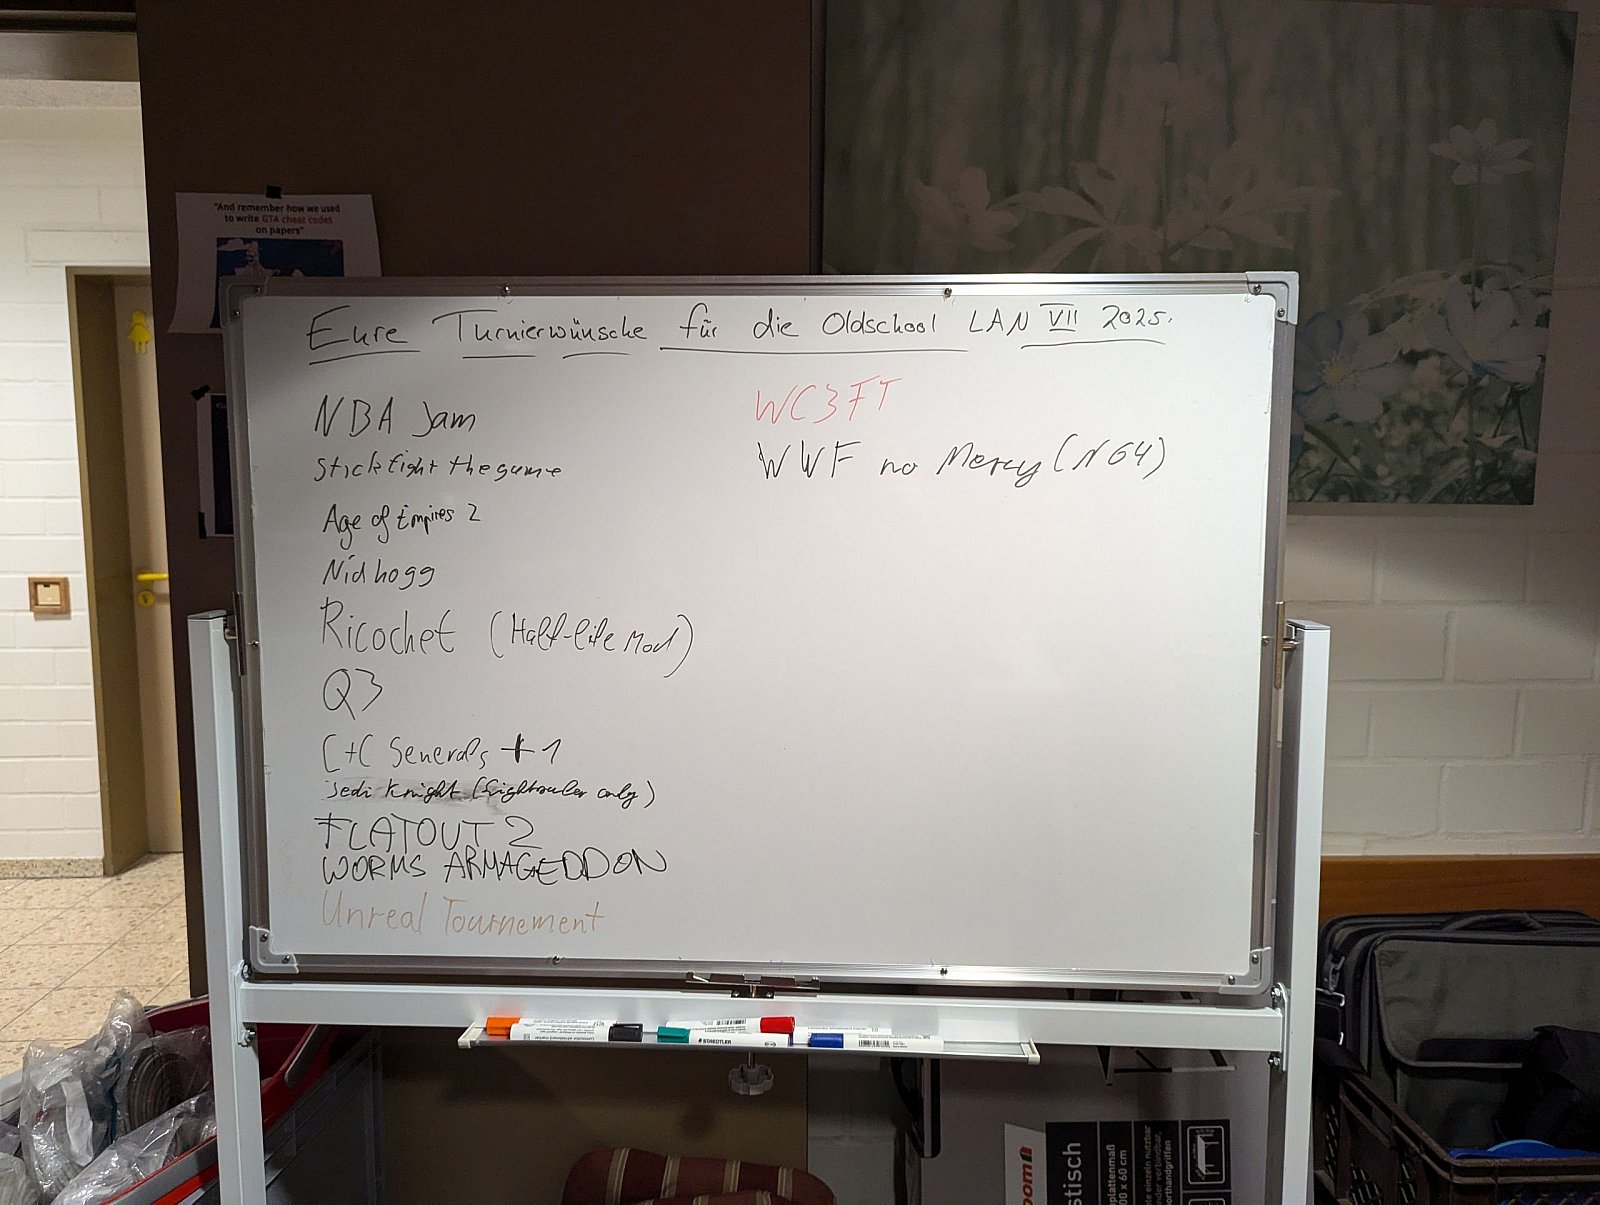 "And remember how we used
to write GTA cheat codes
on papers"
Eure Turnierwünsche für die Oldschool LAN VII 2025.
NBA Jam
Stick fight the game
Age of Empires 2
Nidhogg
Ricochet (Half-life Mod)
Q3
C+C Generals +1
Jedi Knight (Lightsaber only)
FLATOUT 2
WORMS ARMAGEDDON
Unreal Tournement
WC3FT
WWF no Mercy (N64)
STAEDTLER